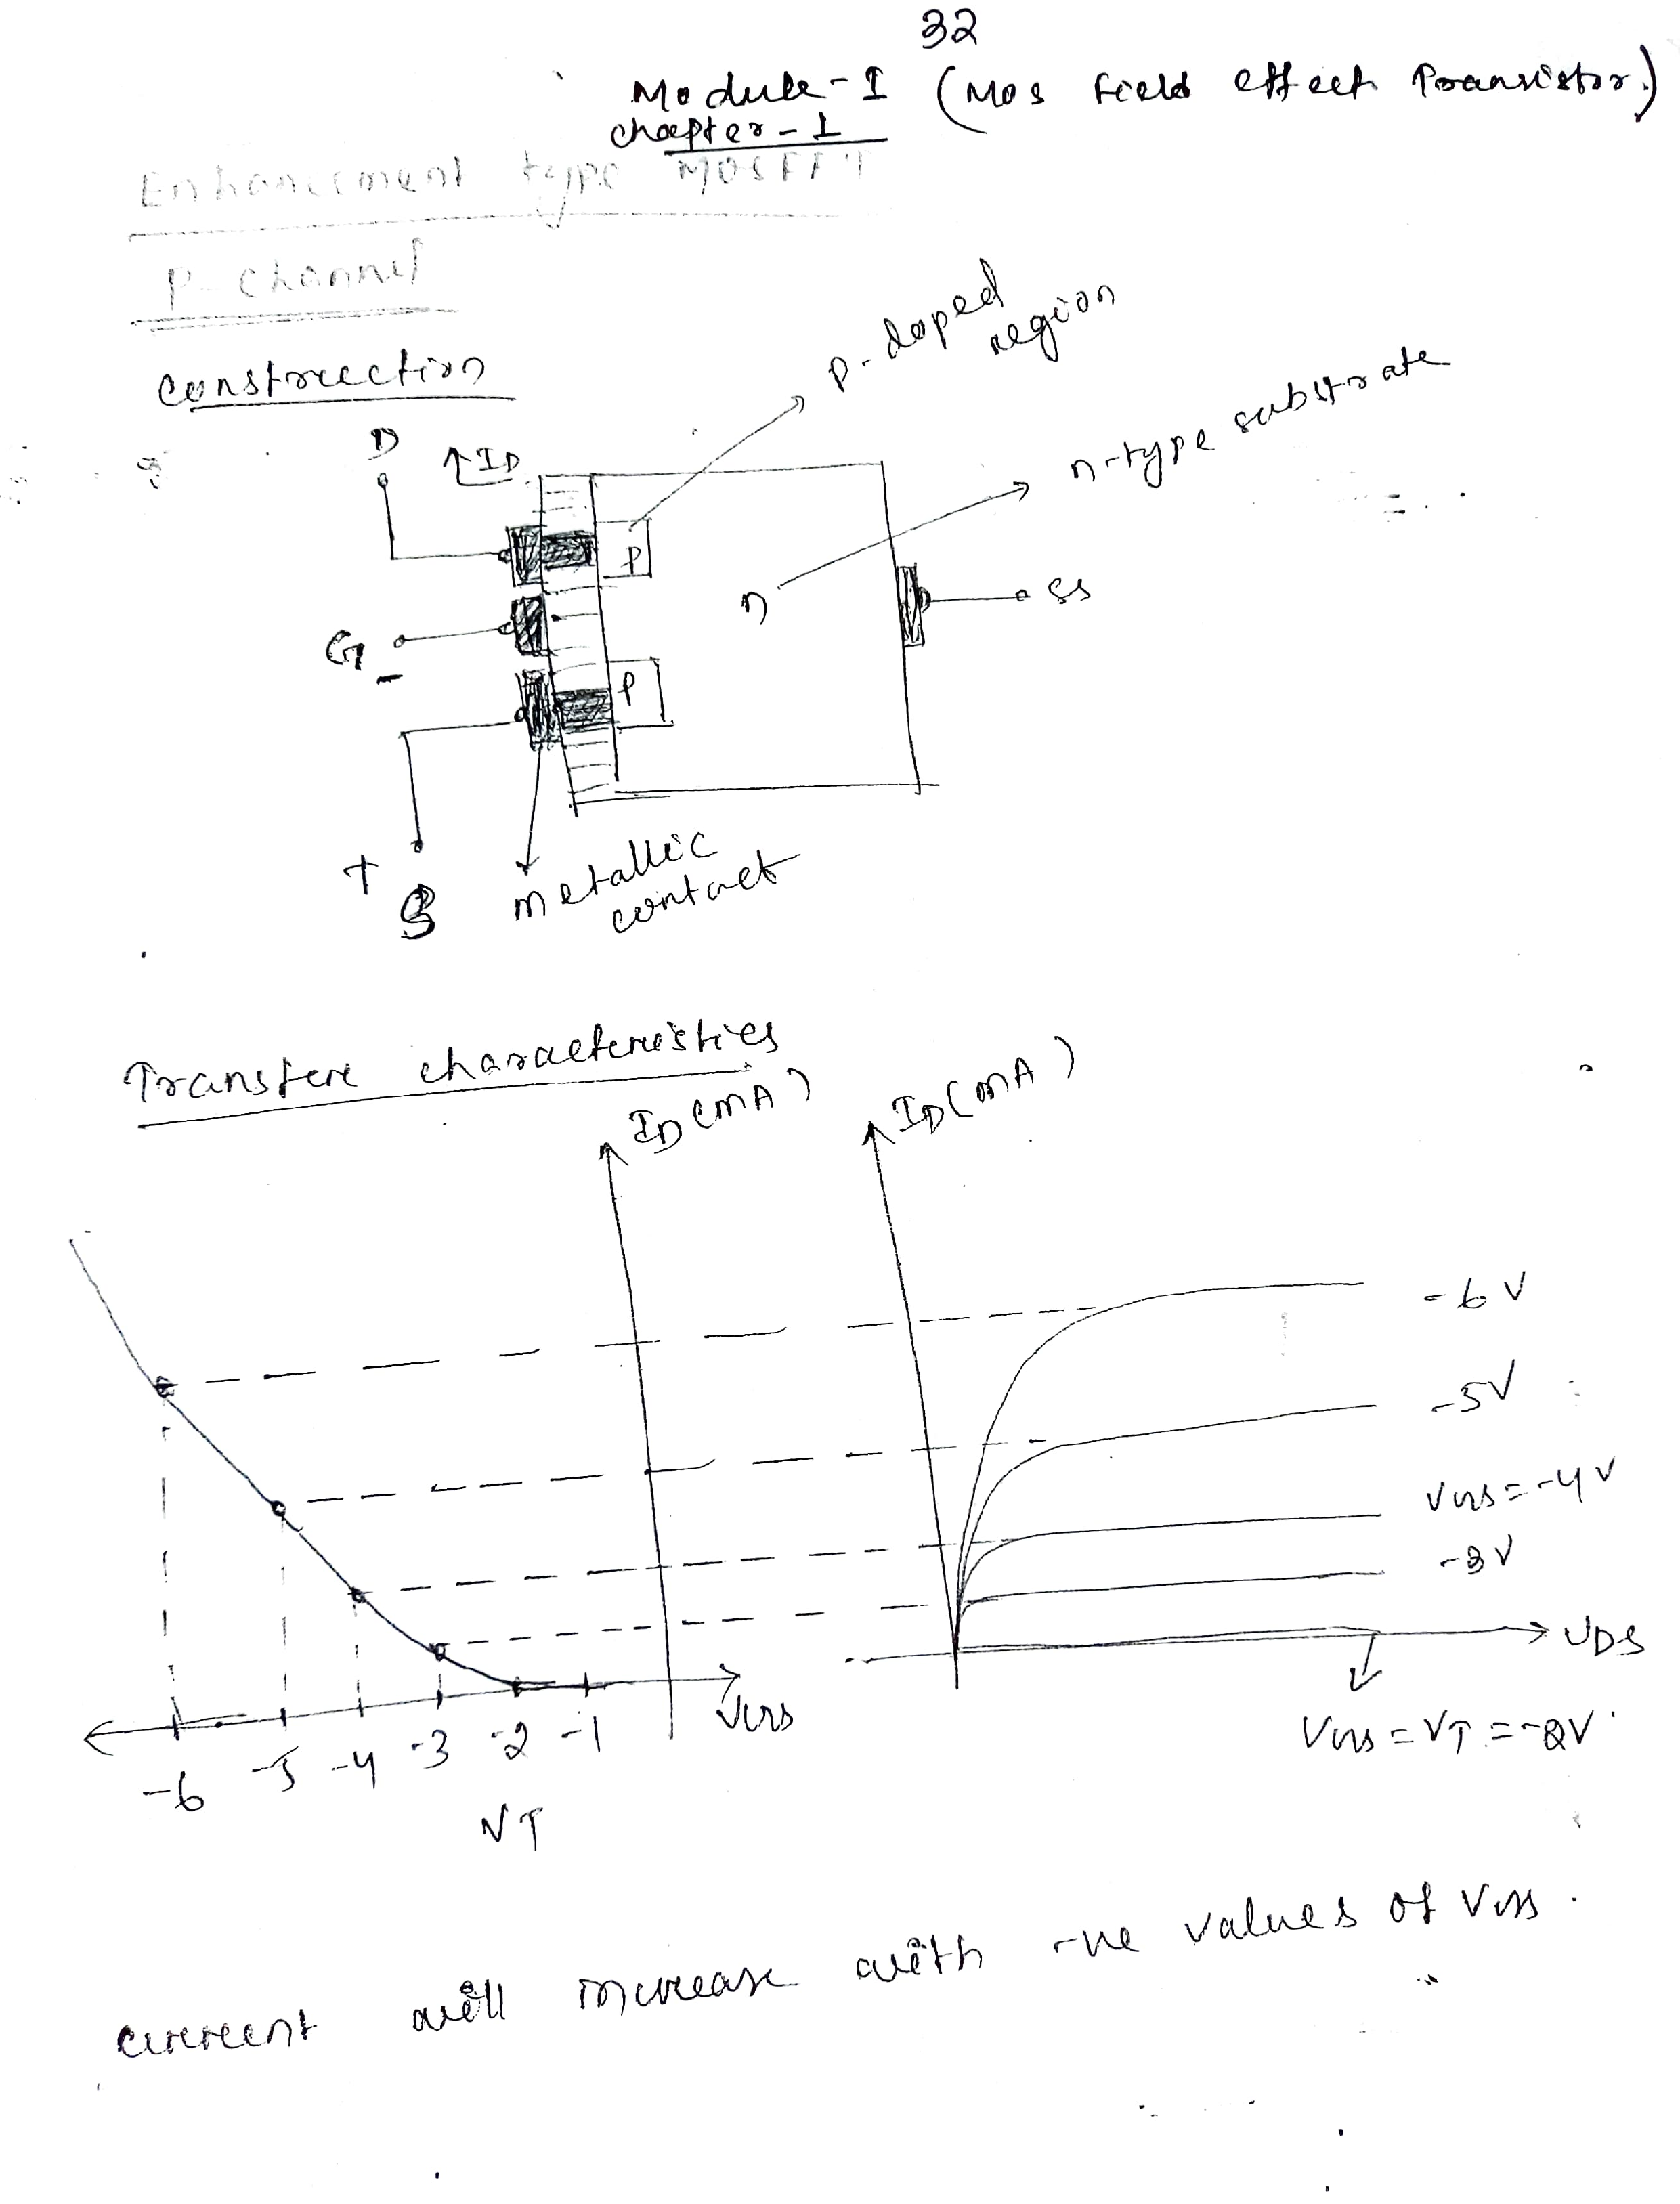 32
Module-I (Mos field effect Transistor)
chapter-1
Enhancement type MOSFET
P-channel
construction
p-doped
region
n-type substrate
D
↑ID
P
n
SS
G
-
P
+
S
metallic
contact
Transfer characteristics
ID(mA)
ID(mA)
-6V
-5V
VGS=-4V
-3V
VDS
VGS
-6 -5 -4 -3 -2 -1
VT
VGS=VT=-2V
current will increase with -ve values of VGS.